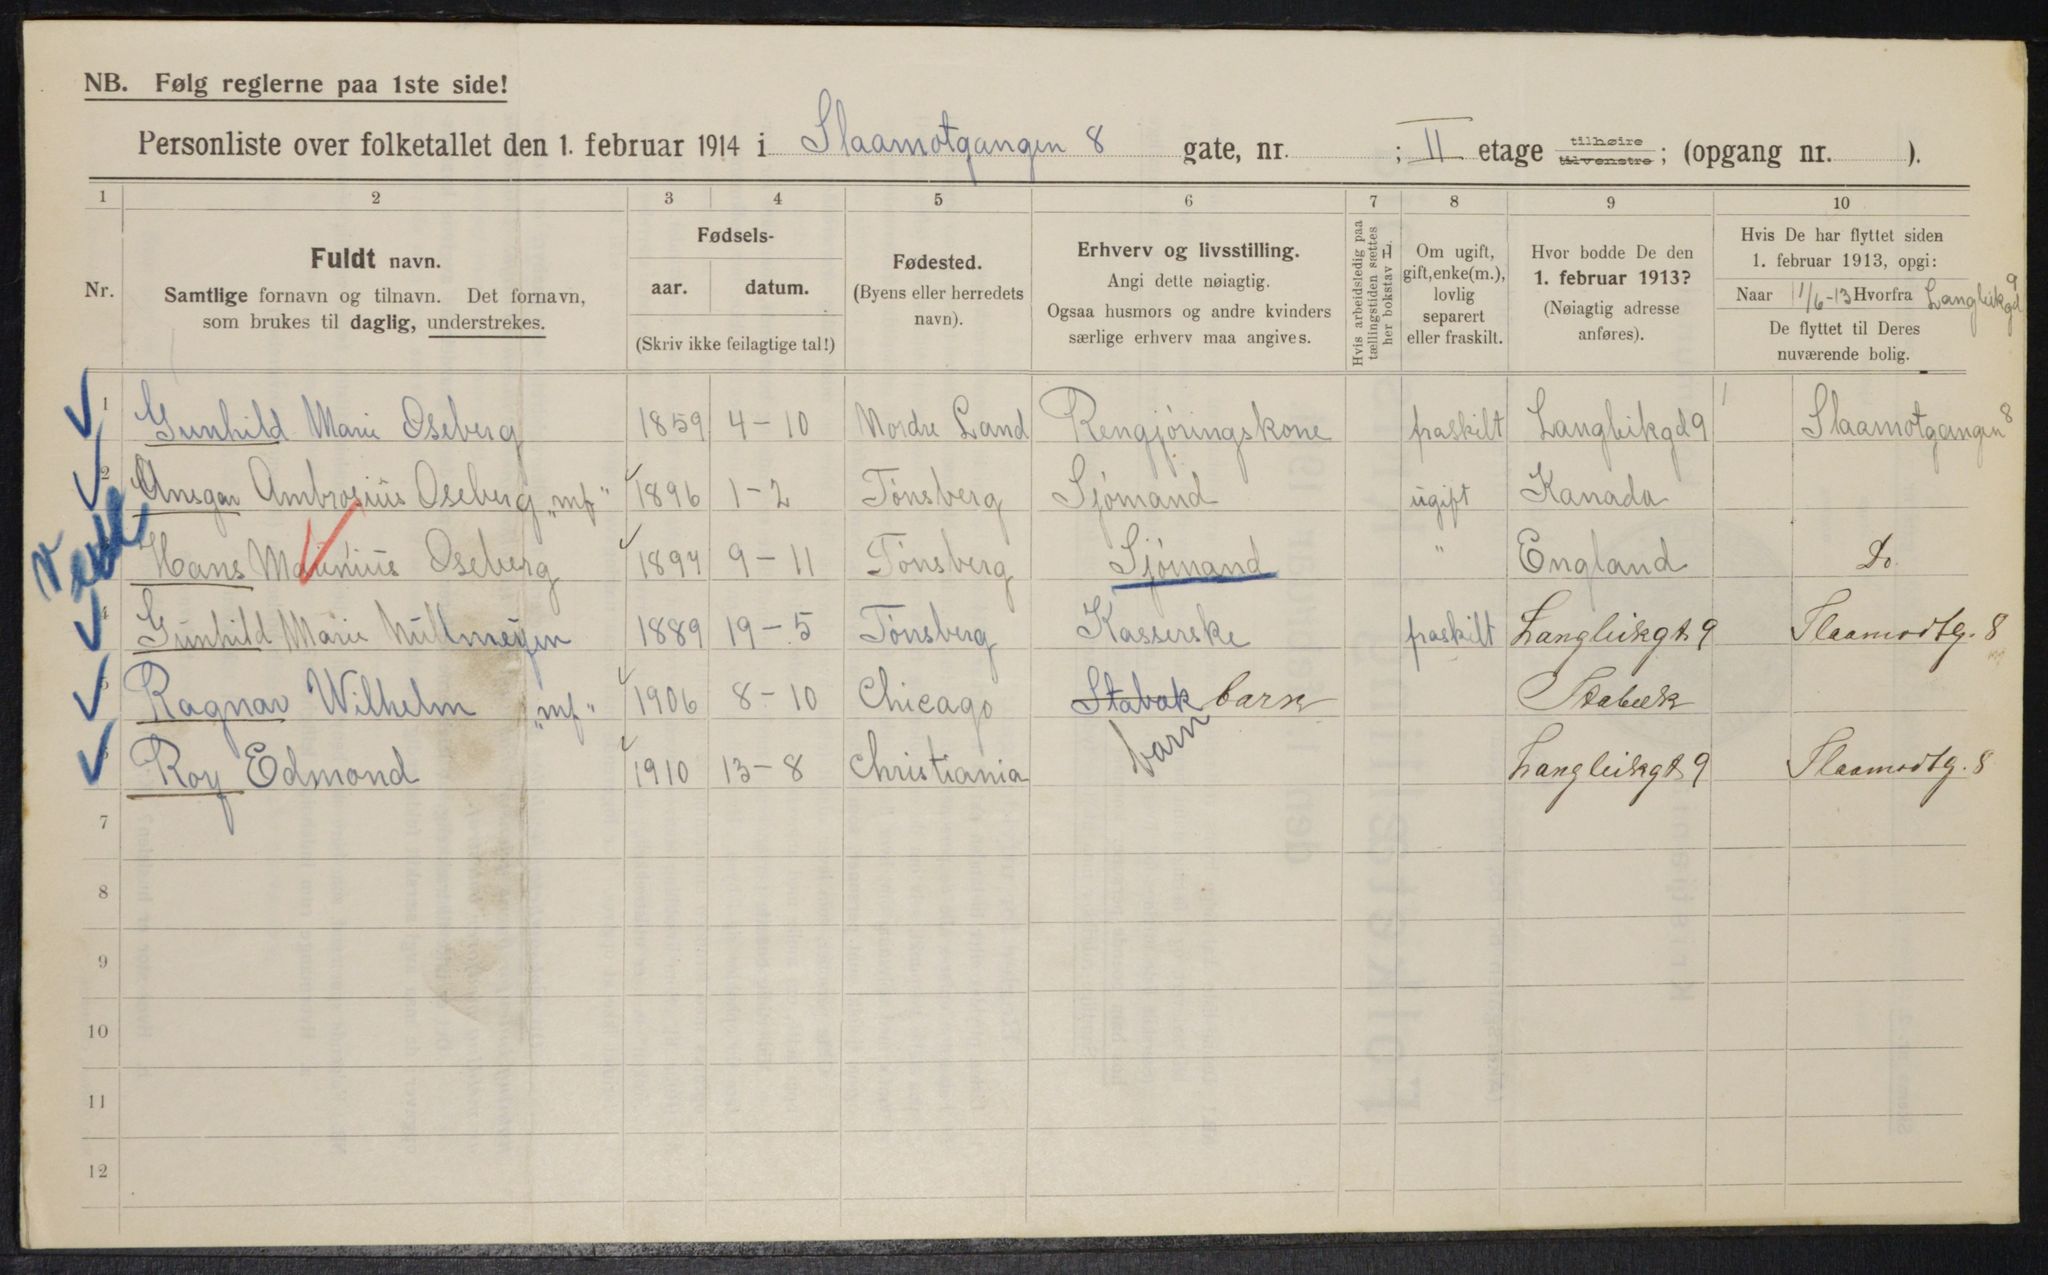 NB. Følg reglerne paa 1ste side!
Personliste over folketallet den 1. februar 1914 i Slaamotgangen 8 gate, nr. ; II etage tilhøire tilvenstre; (opgang nr. ).
1 2 3 4 5 6 7 8 9 10
Nr.
Fuldt navn.
Samtlige fornavn og tilnavn. Det fornavn,
som brukes til daglig, understrekes.
Fødsels-
aar. datum.
(Skriv ikke feilagtige tal!)
Fødested.
(Byens eller herredets
navn).
Erhverv og livsstilling.
Angi dette nøiagtig.
Ogsaa husmors og andre kvinders
særlige erhverv maa angives.
Hvis arbeidsledig paa
tællingstiden sættes
her bokstav L
Om ugift,
gift, enke(m.),
lovlig
separert
eller fraskilt.
Hvor bodde De den
1. februar 1913?
(Nøiagtig adresse
anføres).
Hvis De har flyttet siden
1. februar 1913, opgi:
Naar 11/6-13 Hvorfra Langleikgd 9
De flyttet til Deres
nuværende bolig.
1 Gunhild Marie Oseberg 1859 4-10 Nordre Land Rengjøringskone fraskilt Langleikgd 9 Slaamotgangen 8
2 Ansgar Ambrosius Oseberg "mf" 1896 1-2 Tønsberg Sjømand ugift Kanada
Hans Marinius Oseberg 1897 9-11 Tønsberg Sjømand " England Do.
4 Gunhild Marie Nullmeyen 1889 19-5 Tønsberg Kasserske fraskilt Langleikgt 9 Slaamodtg. 8
5 Ragnar Wilhelm "mf" 1906 8-10 Chicago Stabæk barn Stabæk
barn
6 Roy Edmond 1910 13-8 Christiania Langleikgt 9 Slaamodtg. 8
7
8
9
10
11
12